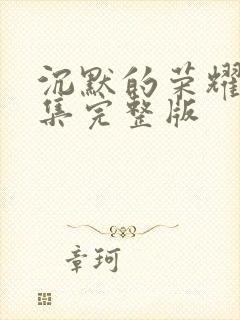 沉默的荣耀
集完整版
章珂